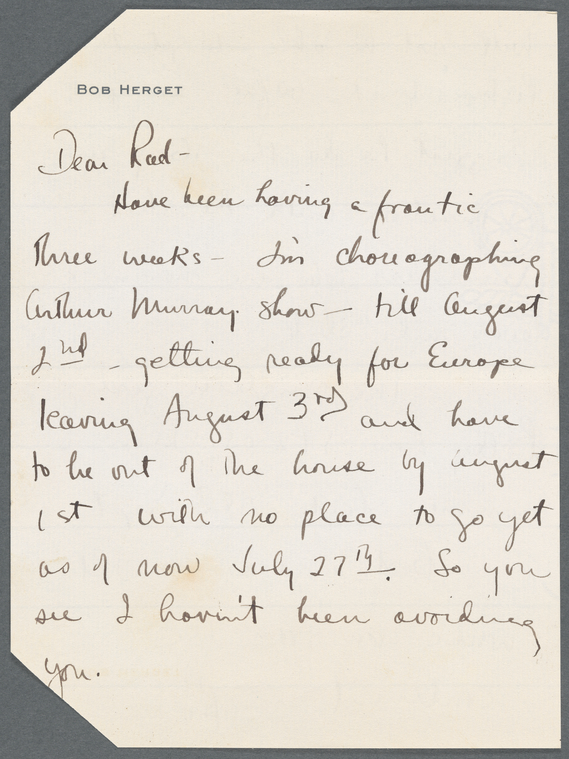 BOB HERGET
Dear Rod-
Have been having a frantic
three weeks - I'm choreographing
Arthur Murray show - till August
2nd - getting ready for Europe
leaving August 3rd and have
to be out of the house by august
1st with no place to go yet
as of now July 27th. So you
see I haven't been avoiding
you.